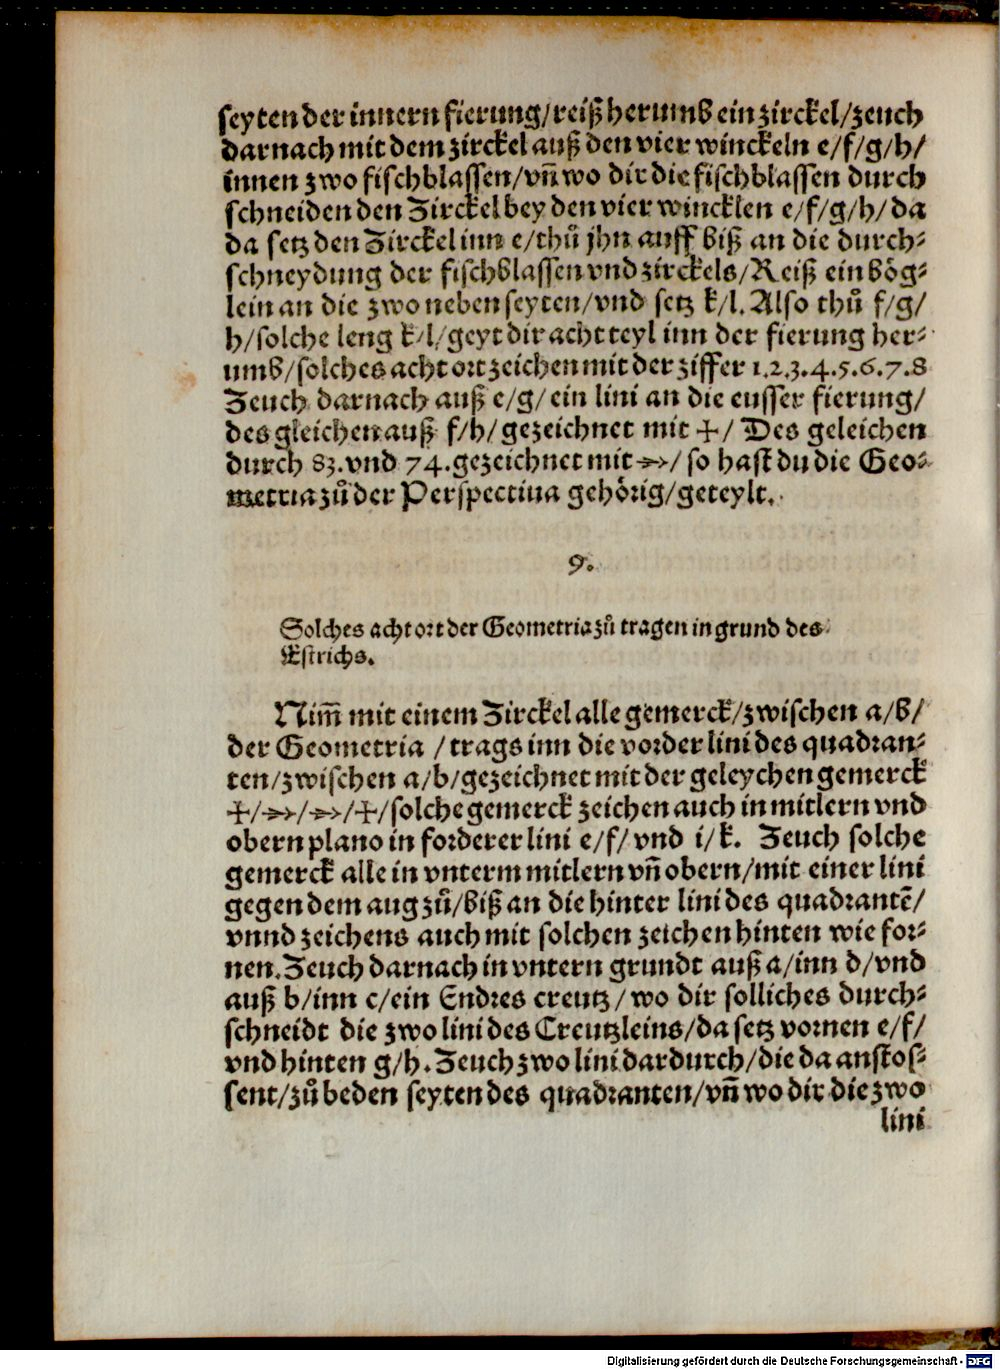 seyten der innern fierung/reiß herumb ein zirckel/zeuch
darnach mit dem zirckel auß den vier winckeln e/f/g/h/
innen zwo fischblassen/vñ wo dir die fischblassen durch
schneiden den Zirckel bey den vier wincklen e/f/g/h/ da
da setz den Zirckel inn e/thů jhn auff biß an die durch⸗
schneydung der fischblassen vnd zirckels/Reiß ein bög⸗
lein an die zwo neben seyten/vnd setz k/l. Also thů f/g/
h/solche leng k/l/geyt dir acht teyl inn der fierung her⸗
umb/solches acht ort zeichen mit der ziffer 1.2.3.4.5.6.7.8
Zeuch darnach auß e/g/ ein lini an die eusser fierung/
des gleichen auß f/h/gezeichnet mit ☩/ Des geleichen
durch 83.vnd 74.gezeichnet mit ➳/ so hast du die Geo⸗
metria zů der Perspectiua gehörig/geteylt.
9.
Solches acht ort der Geometria zů tragen in grund des
Estrichs.
Nim̃ mit einem Zirckel alle gemerck/zwischen a/b/
der Geometria /trags inn die vorder lini des quadran⸗
ten/zwischen a/b/gezeichnet mit der geleychen gemerck
☩/➳/➳/☩/solche gemerck zeichen auch in mitlern vnd
obern plano in forderer lini e/f/ vnd i/k. Zeuch solche
gemerck alle in vnterm mitlern vñ obern/mit einer lini
gegen dem aug zů/biß an die hinter lini des quadrantẽ/
vnnd zeichens auch mit solchen zeichen hinten wie for⸗
nen.Zeuch darnach in vntern grundt auß a/inn d/vnd
auß b/inn c/ein Endres creutz/wo dir solliches durch⸗
schneidt die zwo lini des Creutzleins/da setz vornen e/f/
vnd hinten g/h.Zeuch zwo lini dardurch/die da anstos⸗
sent/zů beden seyten des quadranten/vñ wo dir die zwo
lini
Digitalisierung gefördert durch die Deutsche Forschungsgemeinschaft - DFG